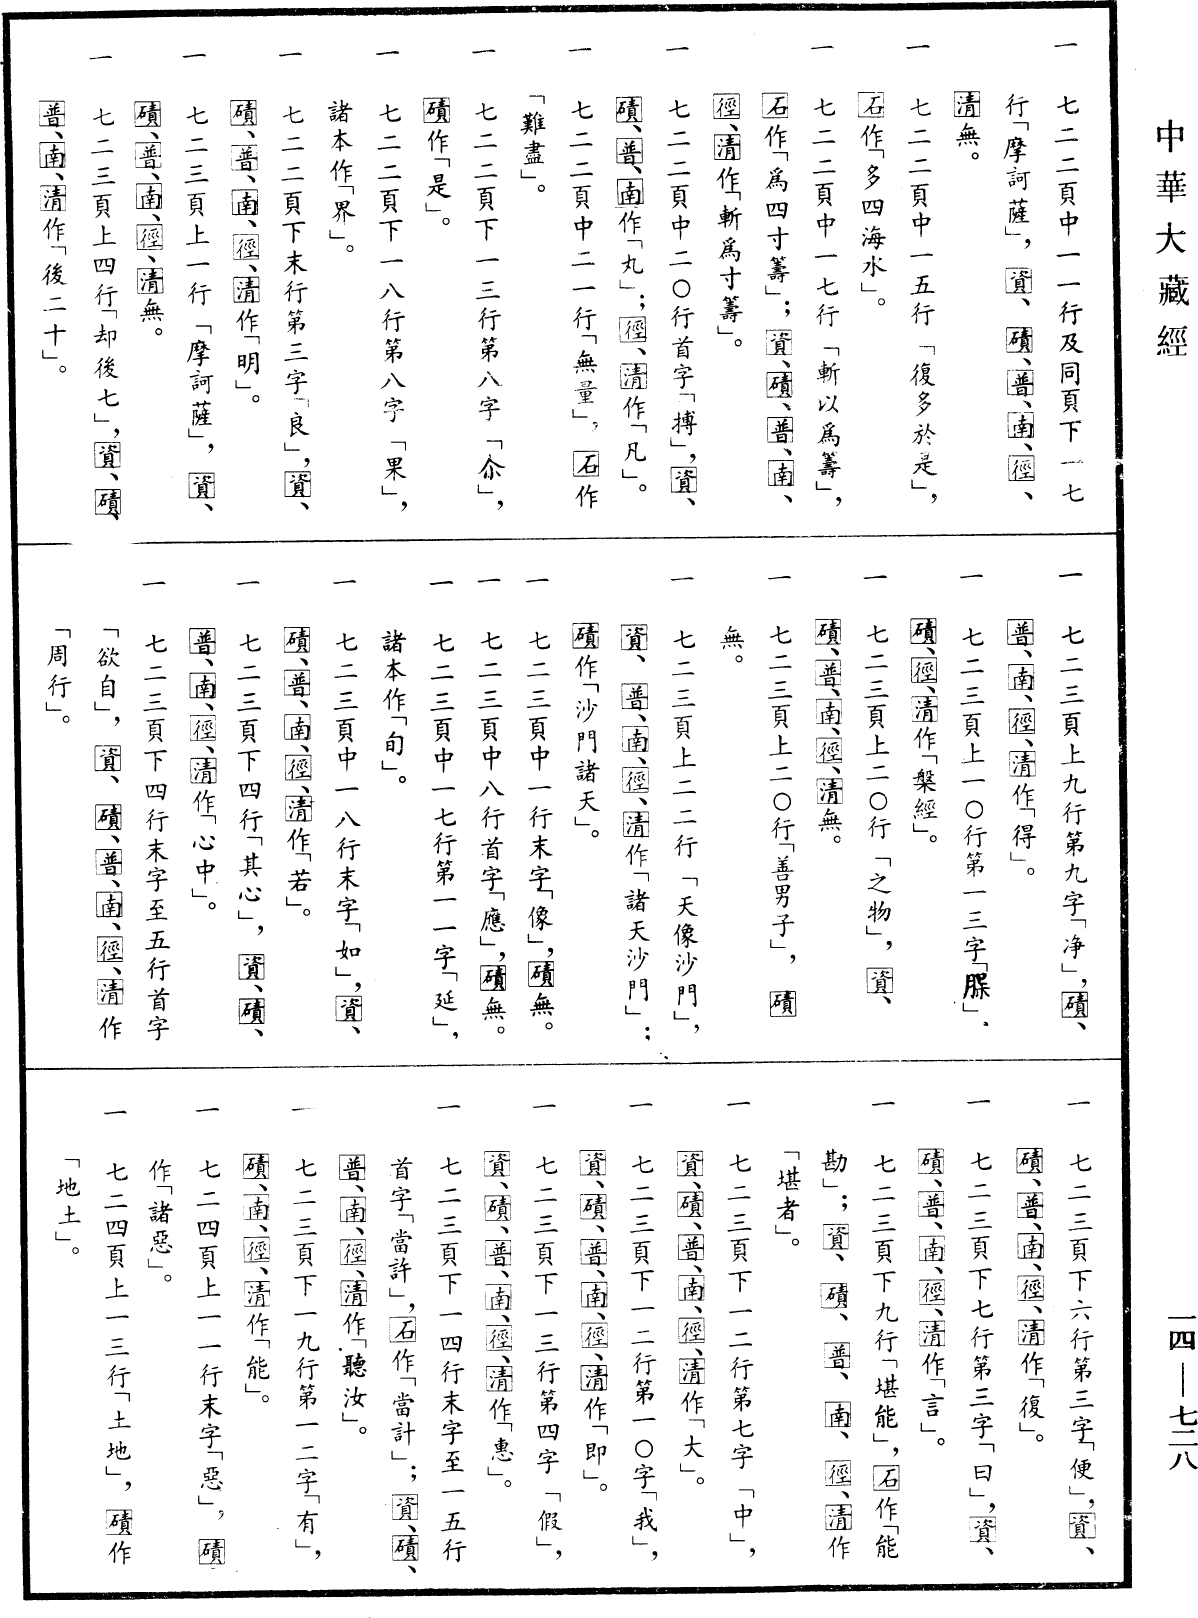 中華大藏經
一四—七二八
一 七二二頁中一一行及同頁下一七
行「摩訶薩」，資、磧、普、南、徑、
清無。
一 七二二頁中一五行「復多於是」，
石作「多四海水」。
一 七二二頁中一七行「斬以爲籌」，
石作「爲四寸籌」；資、磧、普、南、
徑、清作「斬爲寸籌」。
一 七二二頁中二〇行首字「摶」，資、
磧、普、南作「丸」；徑、清作「凡」。
一 七二二頁中二一行「無量」，石作
「難盡」。
一 七二二頁下一三行第八字「尒」，
磧作「是」。
一 七二二頁下一八行第八字「果」，
諸本作「界」。
一 七二二頁下末行第三字「良」，資、
磧、普、南、徑、清作「明」。
一 七二三頁上一行「摩訶薩」，資、
磧、普、南、徑、清無。
一 七二三頁上四行「却後七」，資、磧、
普、南、清作「後二十」。
一 七二三頁上九行第九字「净」，磧、
普、南、徑、清作「得」。
一 七二三頁上一〇行第一三字「臊」，
磧、徑、清作「槃經」。
一 七二三頁上二〇行「之物」，資、
磧、普、南、徑、清無。
一 七二三頁上二〇行「善男子」，磧
無。
一 七二三頁上二二行「天像沙門」，
資、普、南、徑、清作「諸天沙門」；
磧作「沙門諸天」。
一 七二三頁中一行末字「像」，磧無。
一 七二三頁中八行首字「應」，磧無。
一 七二三頁中一七行第一一字「延」，
諸本作「旬」。
一 七二三頁中一八行末字「如」，資、
磧、普、南、徑、清作「若」。
一 七二三頁下四行「其心」，資、磧、
普、南、徑、清作「心中」。
一 七二三頁下四行末字至五行首字
「欲自」，資、磧、普、南、徑、清作
「周行」。
一 七二三頁下六行第三字「便」，資、
磧、普、南、徑、清作「復」。
一 七二三頁下七行第三字「曰」，資、
磧、普、南、徑、清作「言」。
一 七二三頁下九行「堪能」，石作「能
勘」；資、磧、普、南、徑、清作
「堪者」。
一 七二三頁下一二行第七字「中」，
資、磧、普、南、徑、清作「大」。
一 七二三頁下一二行第一〇字「我」，
資、磧、普、南、徑、清作「即」。
一 七二三頁下一三行第四字「假」，
資、磧、普、南、徑、清作「惠」。
一 七二三頁下一四行末字至一五行
首字「當許」，石作「當計」；資、磧、
普、南、徑、清作「聽汝」。
一 七二三頁下一九行第一二字「有」，
磧、南、徑、清作「能」。
一 七二四頁上一一行末字「惡」，磧
作「諸惡」。
一 七二四頁上一三行「土地」，磧作
「地土」。